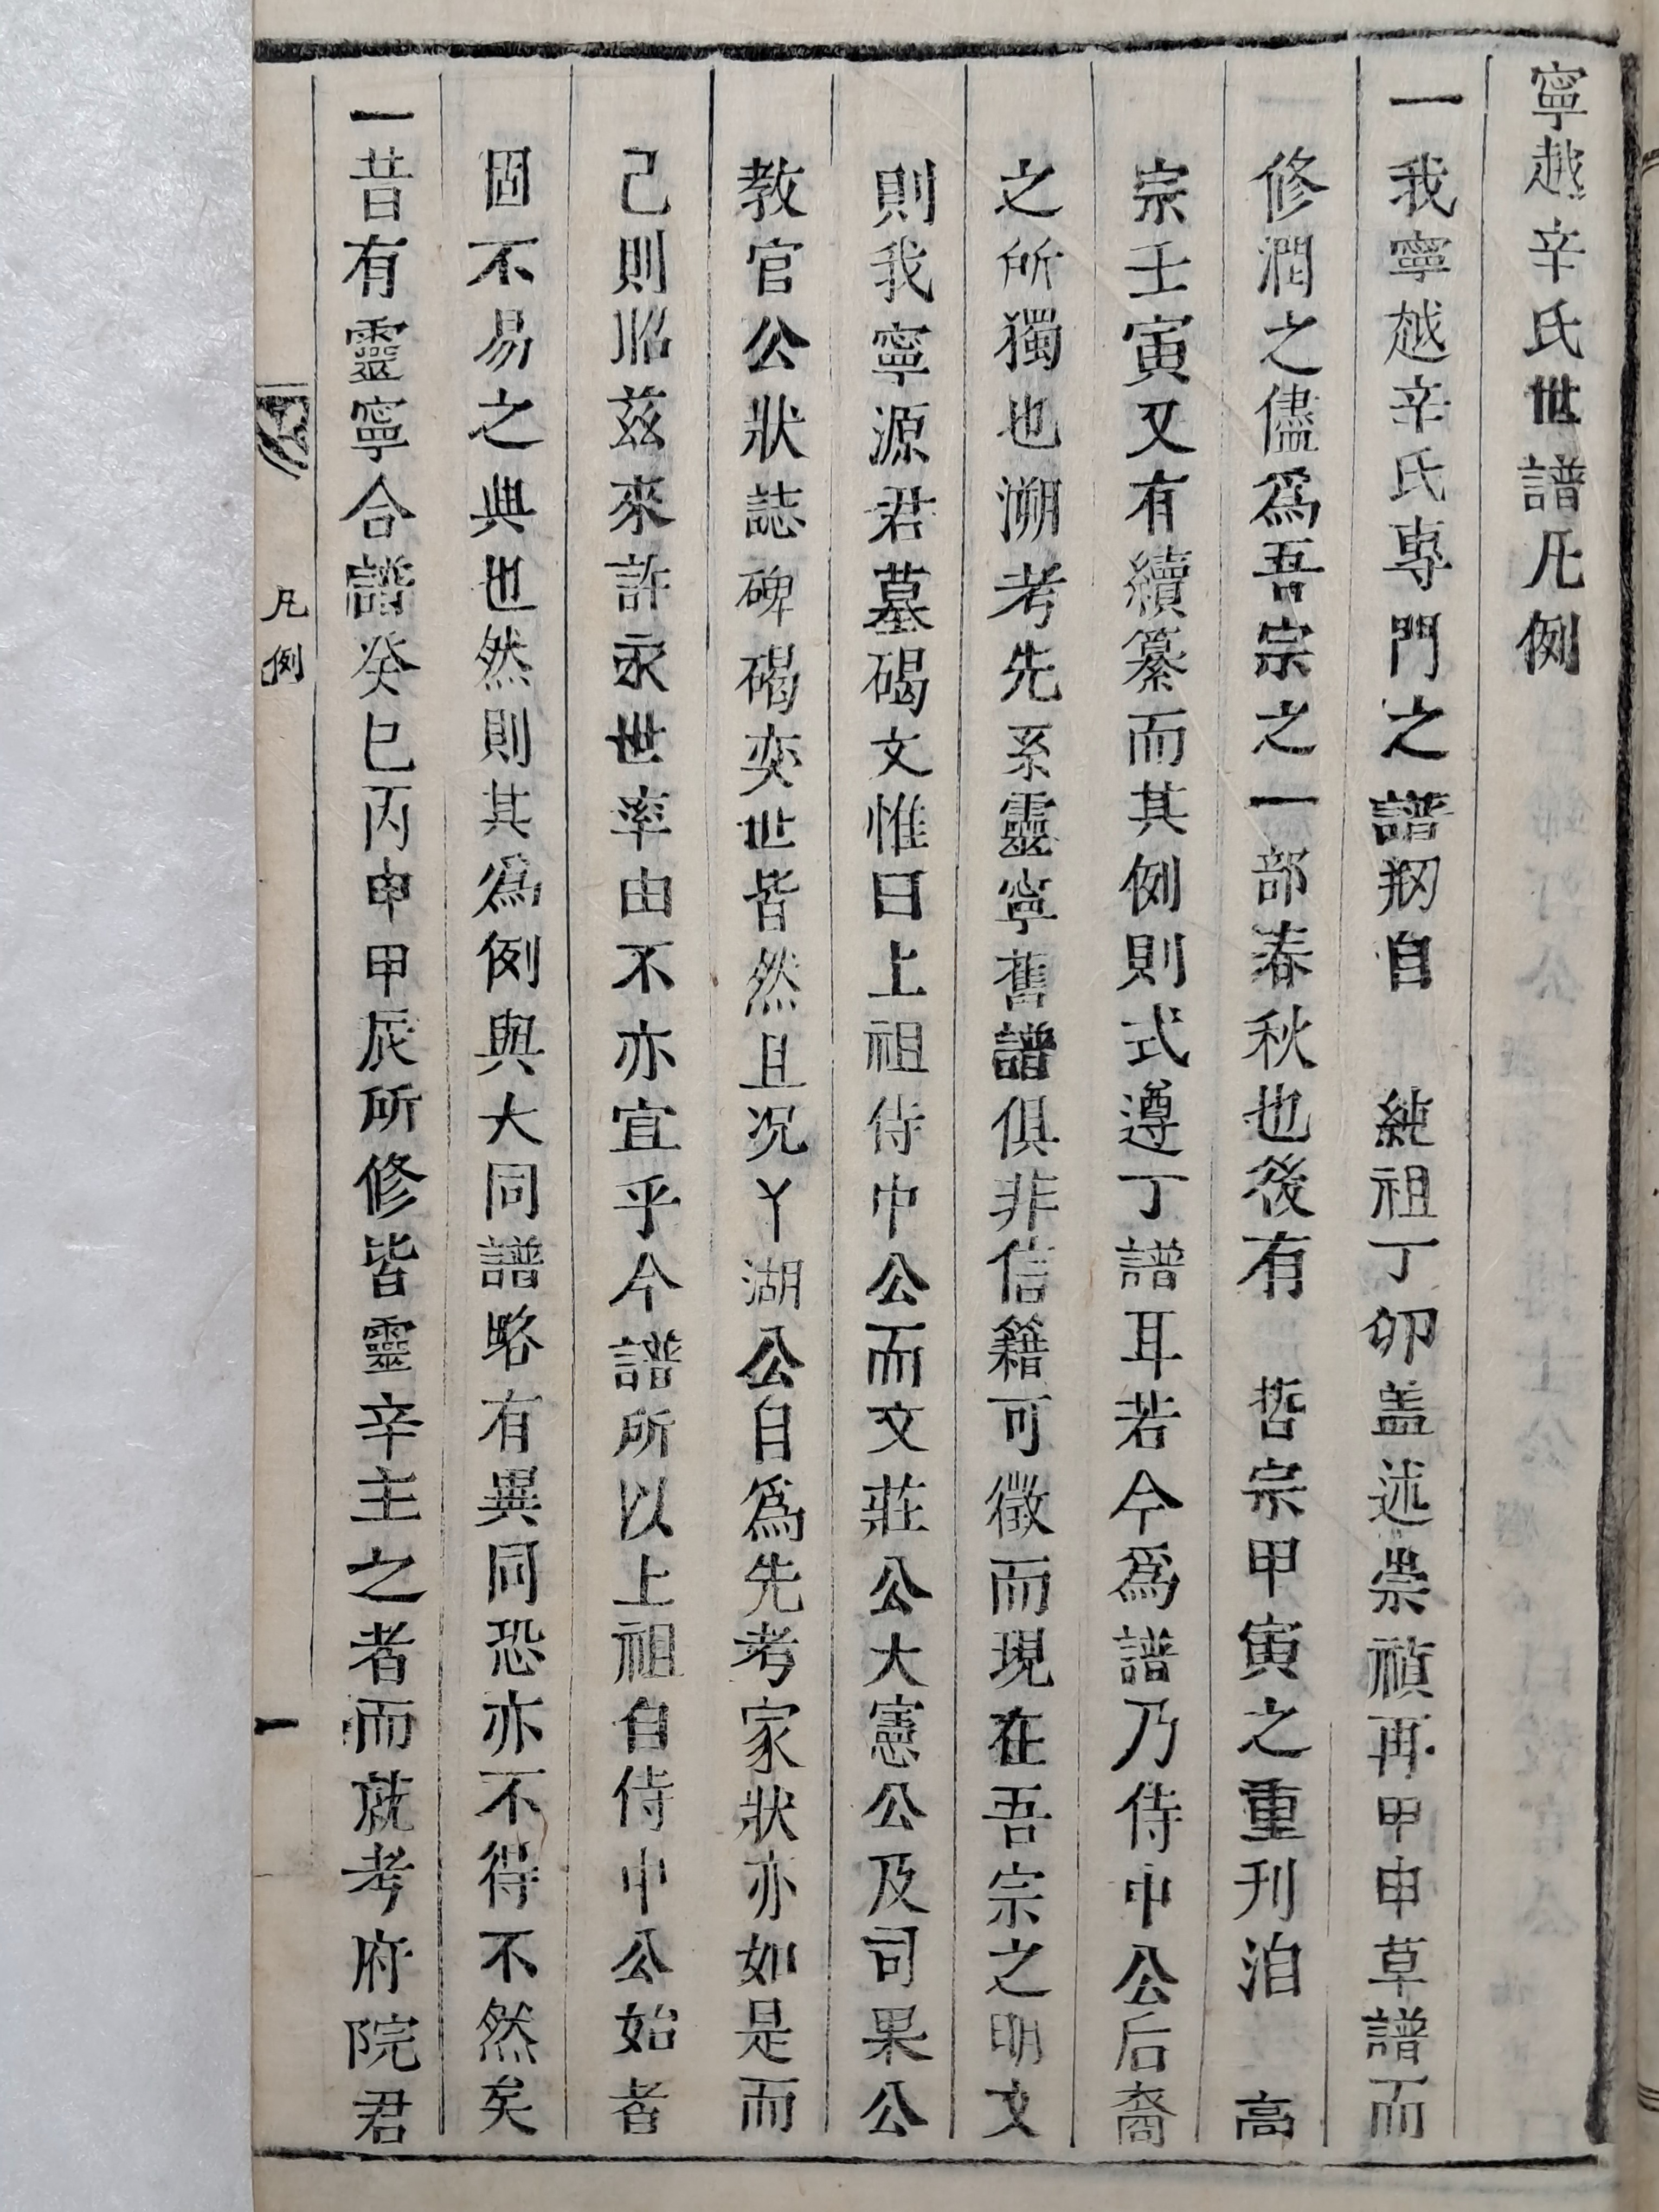 寧越辛氏世譜凡例
一我寧越辛氏專門之譜刱自　純祖丁卯盖述崇禎再甲申草譜而
修潤之儘爲吾宗之一部春秋也後有　哲宗甲寅之重刊洎　高
宗壬寅又有續纂而其例則式遵丁譜耳若今爲譜乃侍中公后裔
之所獨也溯考先系靈寧舊譜俱非信籍可徵而現在吾宗之明文
則我寧源君墓碣文惟曰上祖侍中公而文莊公大憲公及司果公
教官公狀誌碑碣奕世皆然且况丫湖公自爲先考家狀亦如是而
己則昭茲來許永世率由不亦宜乎今譜所以上祖自侍中公始者
固不易之典也然則其爲例與大同譜略有異同恐亦不得不然矣
一昔有靈寧合譜癸巳丙申甲辰所修皆靈辛主之者而就考府院君
凡例
一